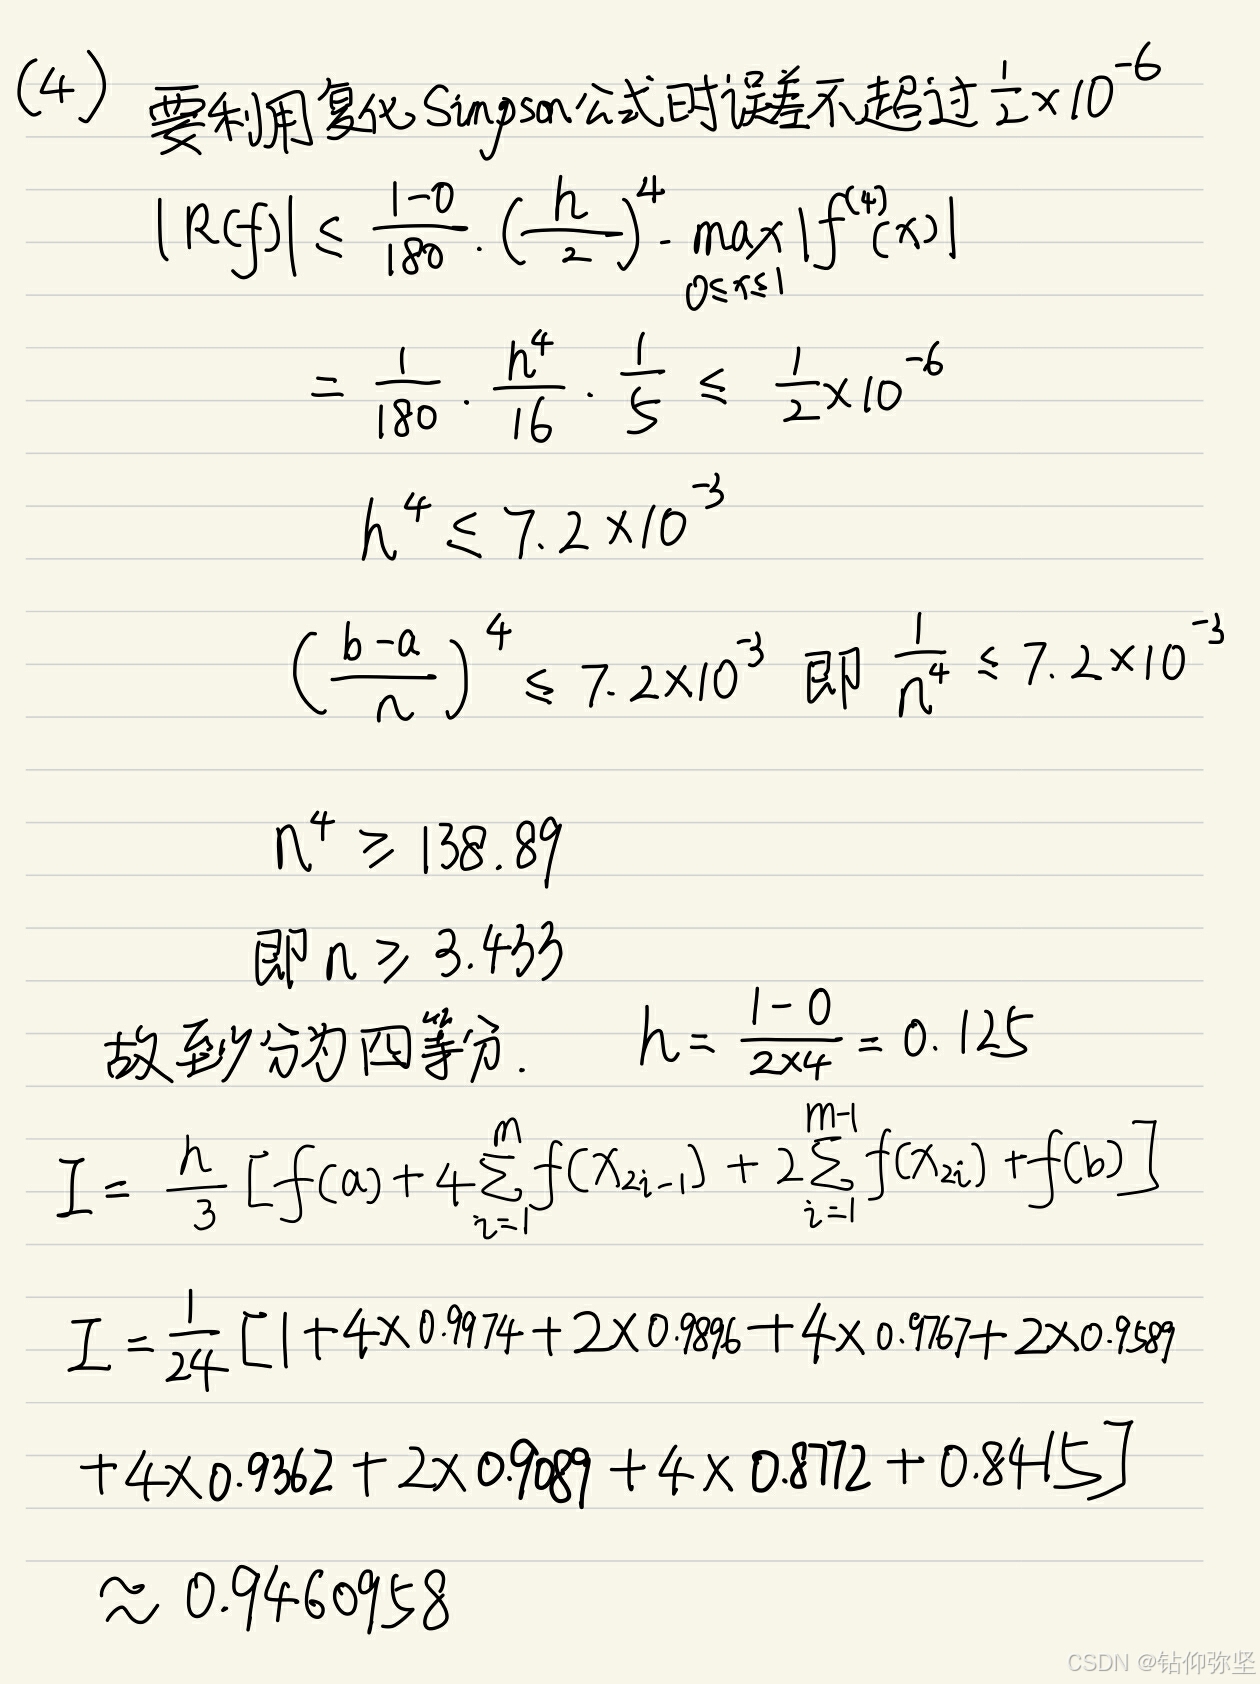 (4) 要利用复化Simpson公式时误差不超过 1/2×10^-6
|R(f)| ≤ (1-0)/180 · (h/2)^4 · max_{0≤x≤1} |f^(4)(x)|
= 1/180 · h^4/16 · 1/5 ≤ 1/2×10^-6
h^4 ≤ 7.2×10^-3
((b-a)/n)^4 ≤ 7.2×10^-3 即 1/n^4 ≤ 7.2×10^-3
n^4 ≥ 138.89
即 n ≥ 3.433
故至少分为四等分. h = (1-0)/(2×4) = 0.125
I = h/3 [f(a) + 4∑_{i=1}^{m} f(x_{2i-1}) + 2∑_{i=1}^{m-1} f(x_{2i}) + f(b)]
I = 1/24 [1+4×0.9974+2×0.9896+4×0.9767+2×0.9589
+4×0.9362+2×0.9089+4×0.8772+0.8415]
≈ 0.9460958
CSDN @钻仰弥坚